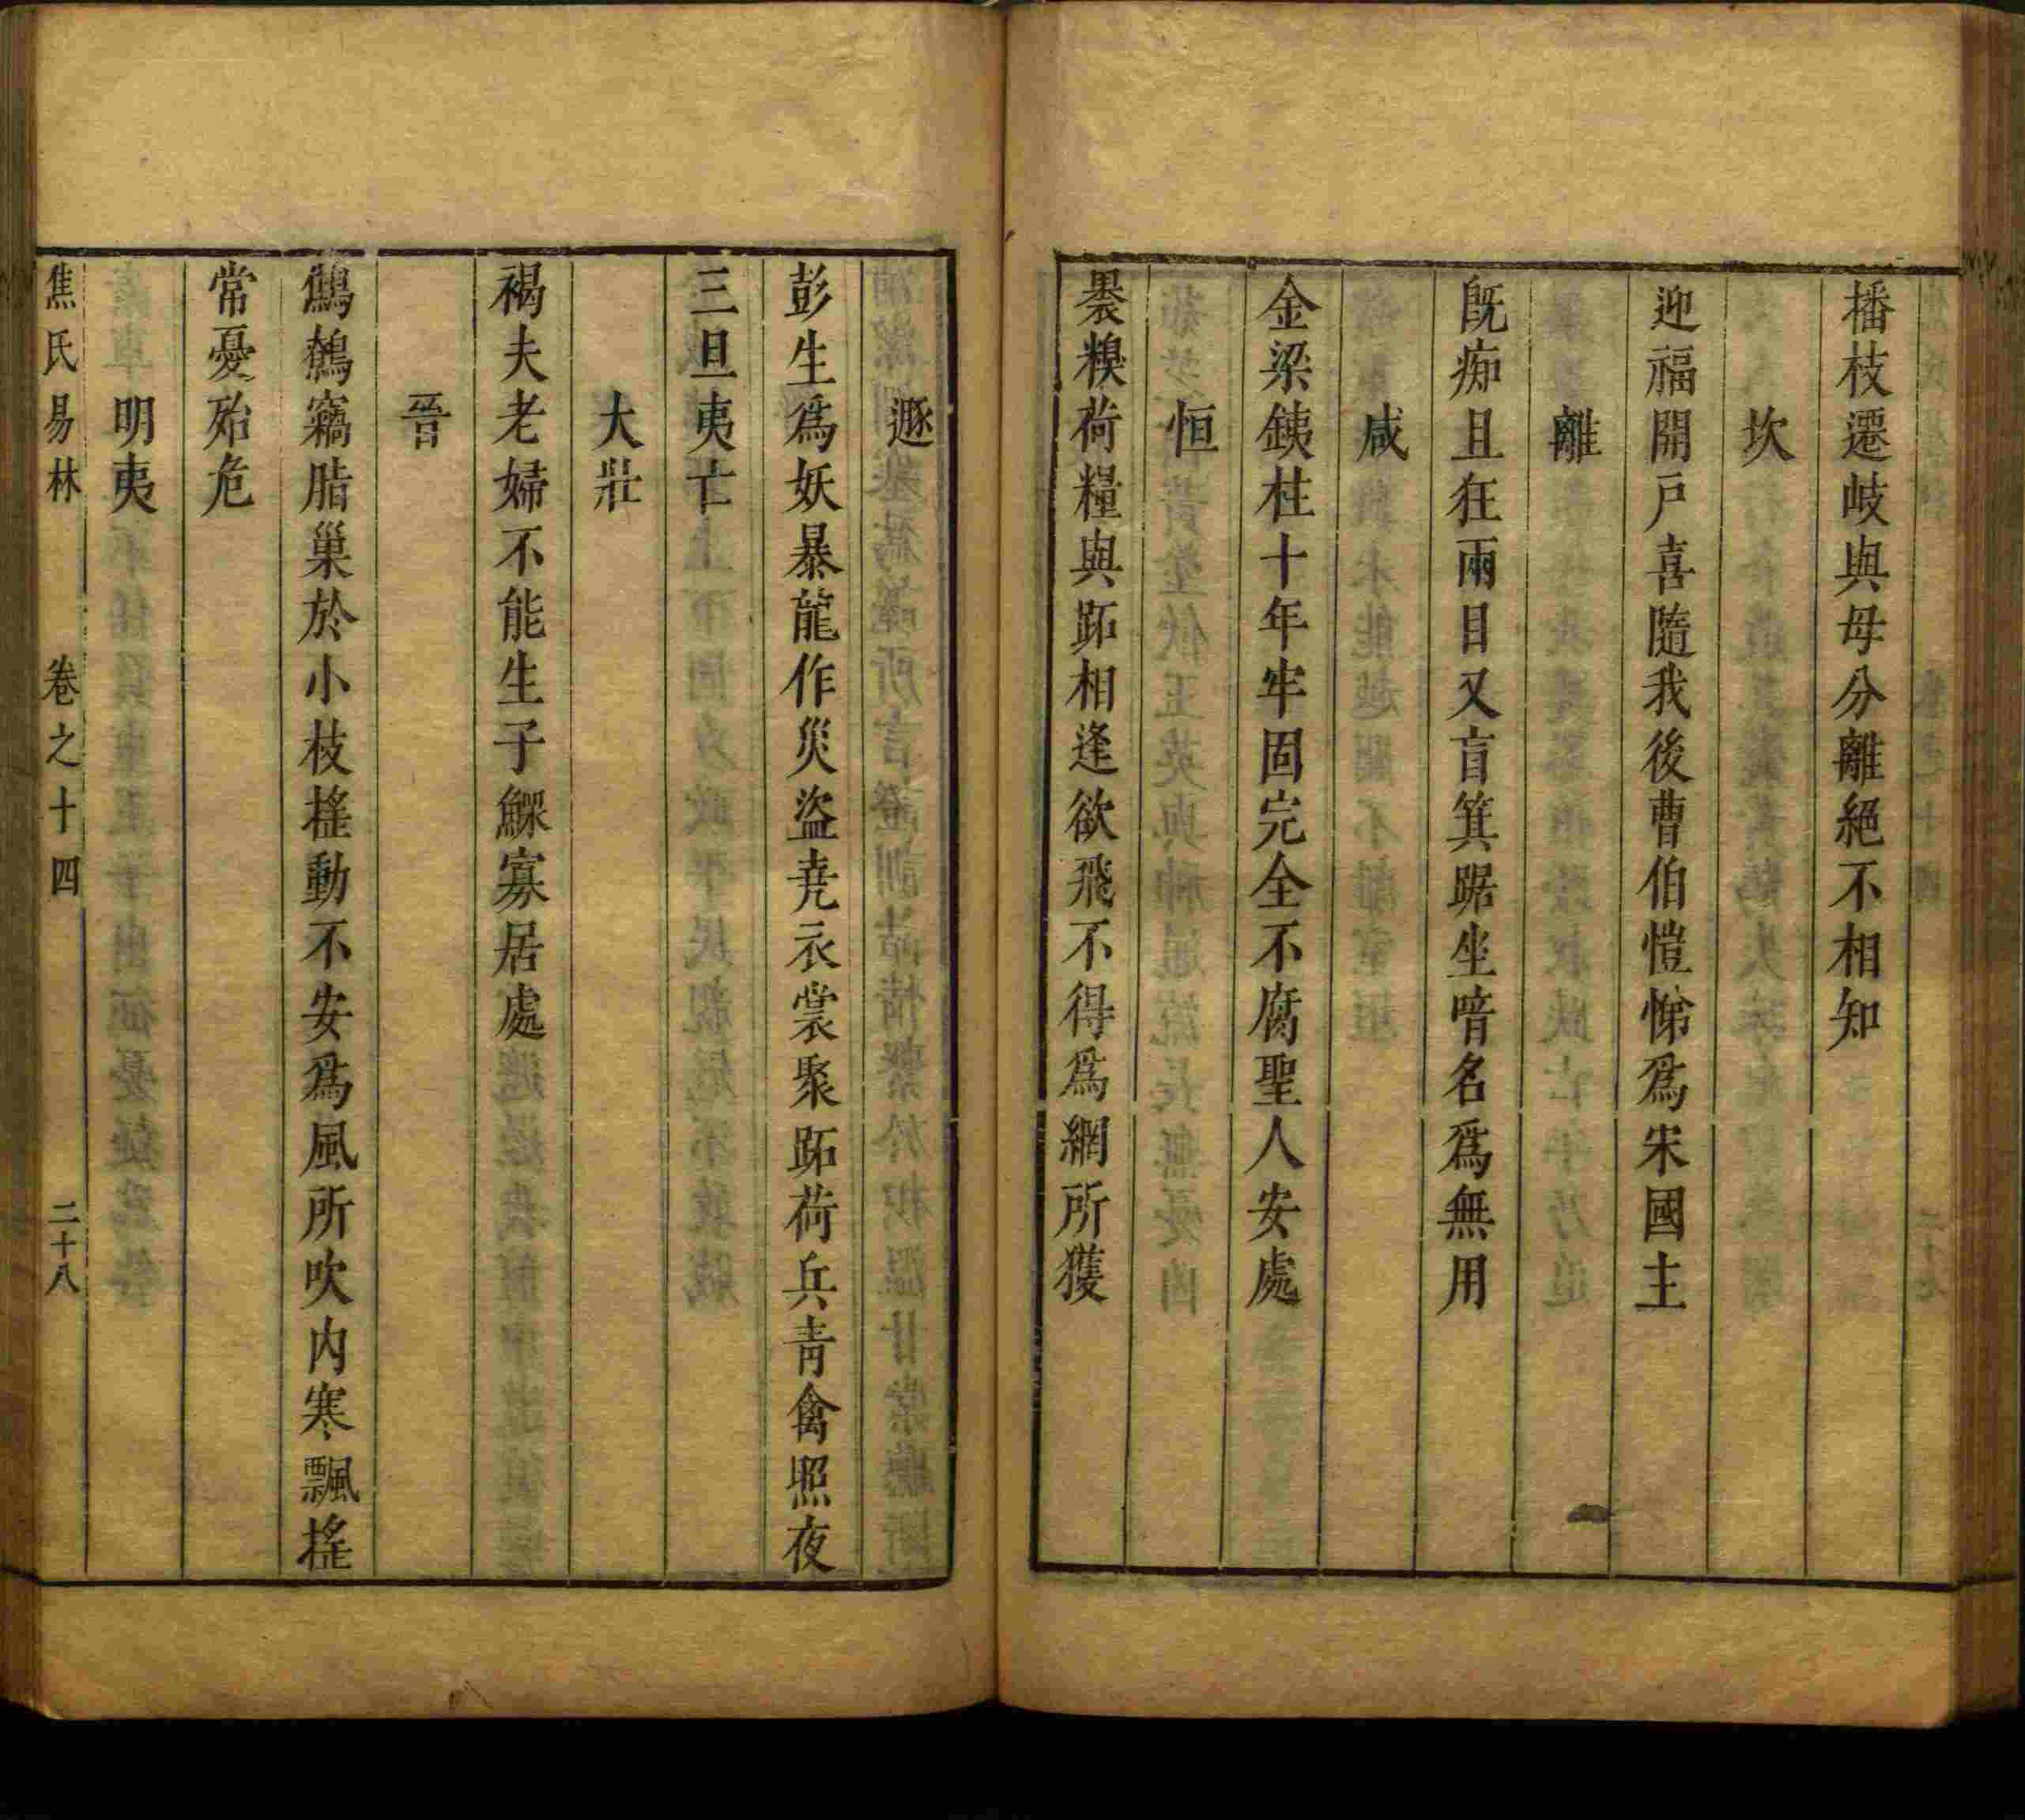 播枝遷岐與母分離絕不相知
坎
迎福開戶喜隨我後曹伯愷悌爲宋國主
離
旣痴且狂兩目又盲箕踞坐喑名爲無用
咸
金梁鐵柱十年牢固完全不腐聖人安處
恒
裹糗荷糧與跖相逢欲飛不得爲網所獲
遯
彭生爲妖暴龍作災盜尭衣裳聚跖荷兵青禽照夜
三旦夷亡
大壯
褐夫老婦不能生子鰥寡居處
晉
鷦鷯竊脂巢於小枝搖動不安爲風所吹内寒飄搖
常憂殆危
明夷
焦氏易林 卷之十四 二十八